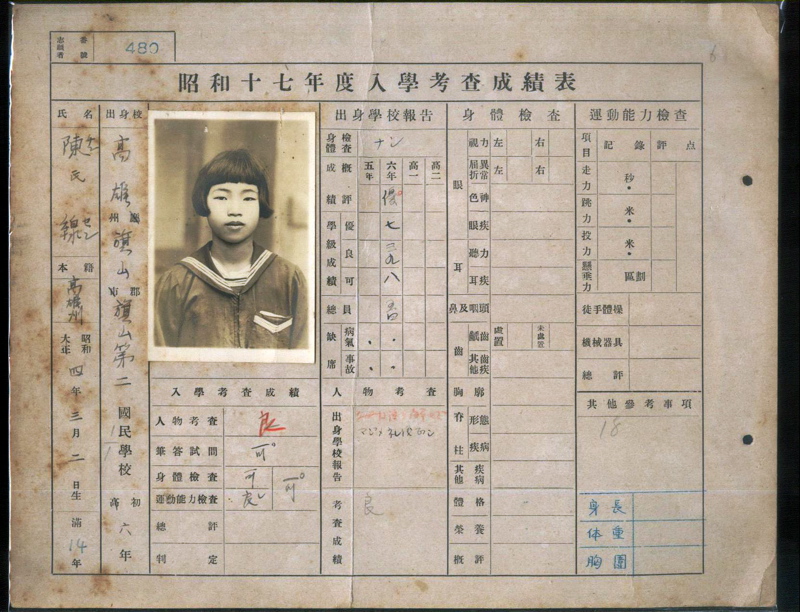 志願者番號
480
昭和十七年度入學考査成績表
氏名
陳氏
本籍
高雄州
大正
昭和
四年三月二日生
滿14年
出身校
高雄州
旗山郡
旗山第二國民學校
初
高
六年
入學考査成績
人物考査
良
筆答試問
可
身體檢査
可
運動能力檢査
良
可
總評
判定
出身學校報告
身體檢査
ナシ
成績
概評
五年
六年
高一
高二
優
學級成績
優
七
良
三九
可
八
總員
缺席
病氣
事故
人物考査
出身學校報告
考査成績
良
身體檢査
眼
視力
左
右
屈折異常
左
右
色神
眼疾
耳
聽力
耳疾
鼻及咽頭
齒
齲齒
處置
未處置
其他齒疾
胸廓
脊柱
形態
疾病
其他疾病
體格
榮養
概評
運動能力檢査
項目
記錄
評點
走力
秒
跳力
米
投力
米
懸垂力
區劃
徒手體操
機械器具
總評
其他參考事項
18
身長
体重
胸圍